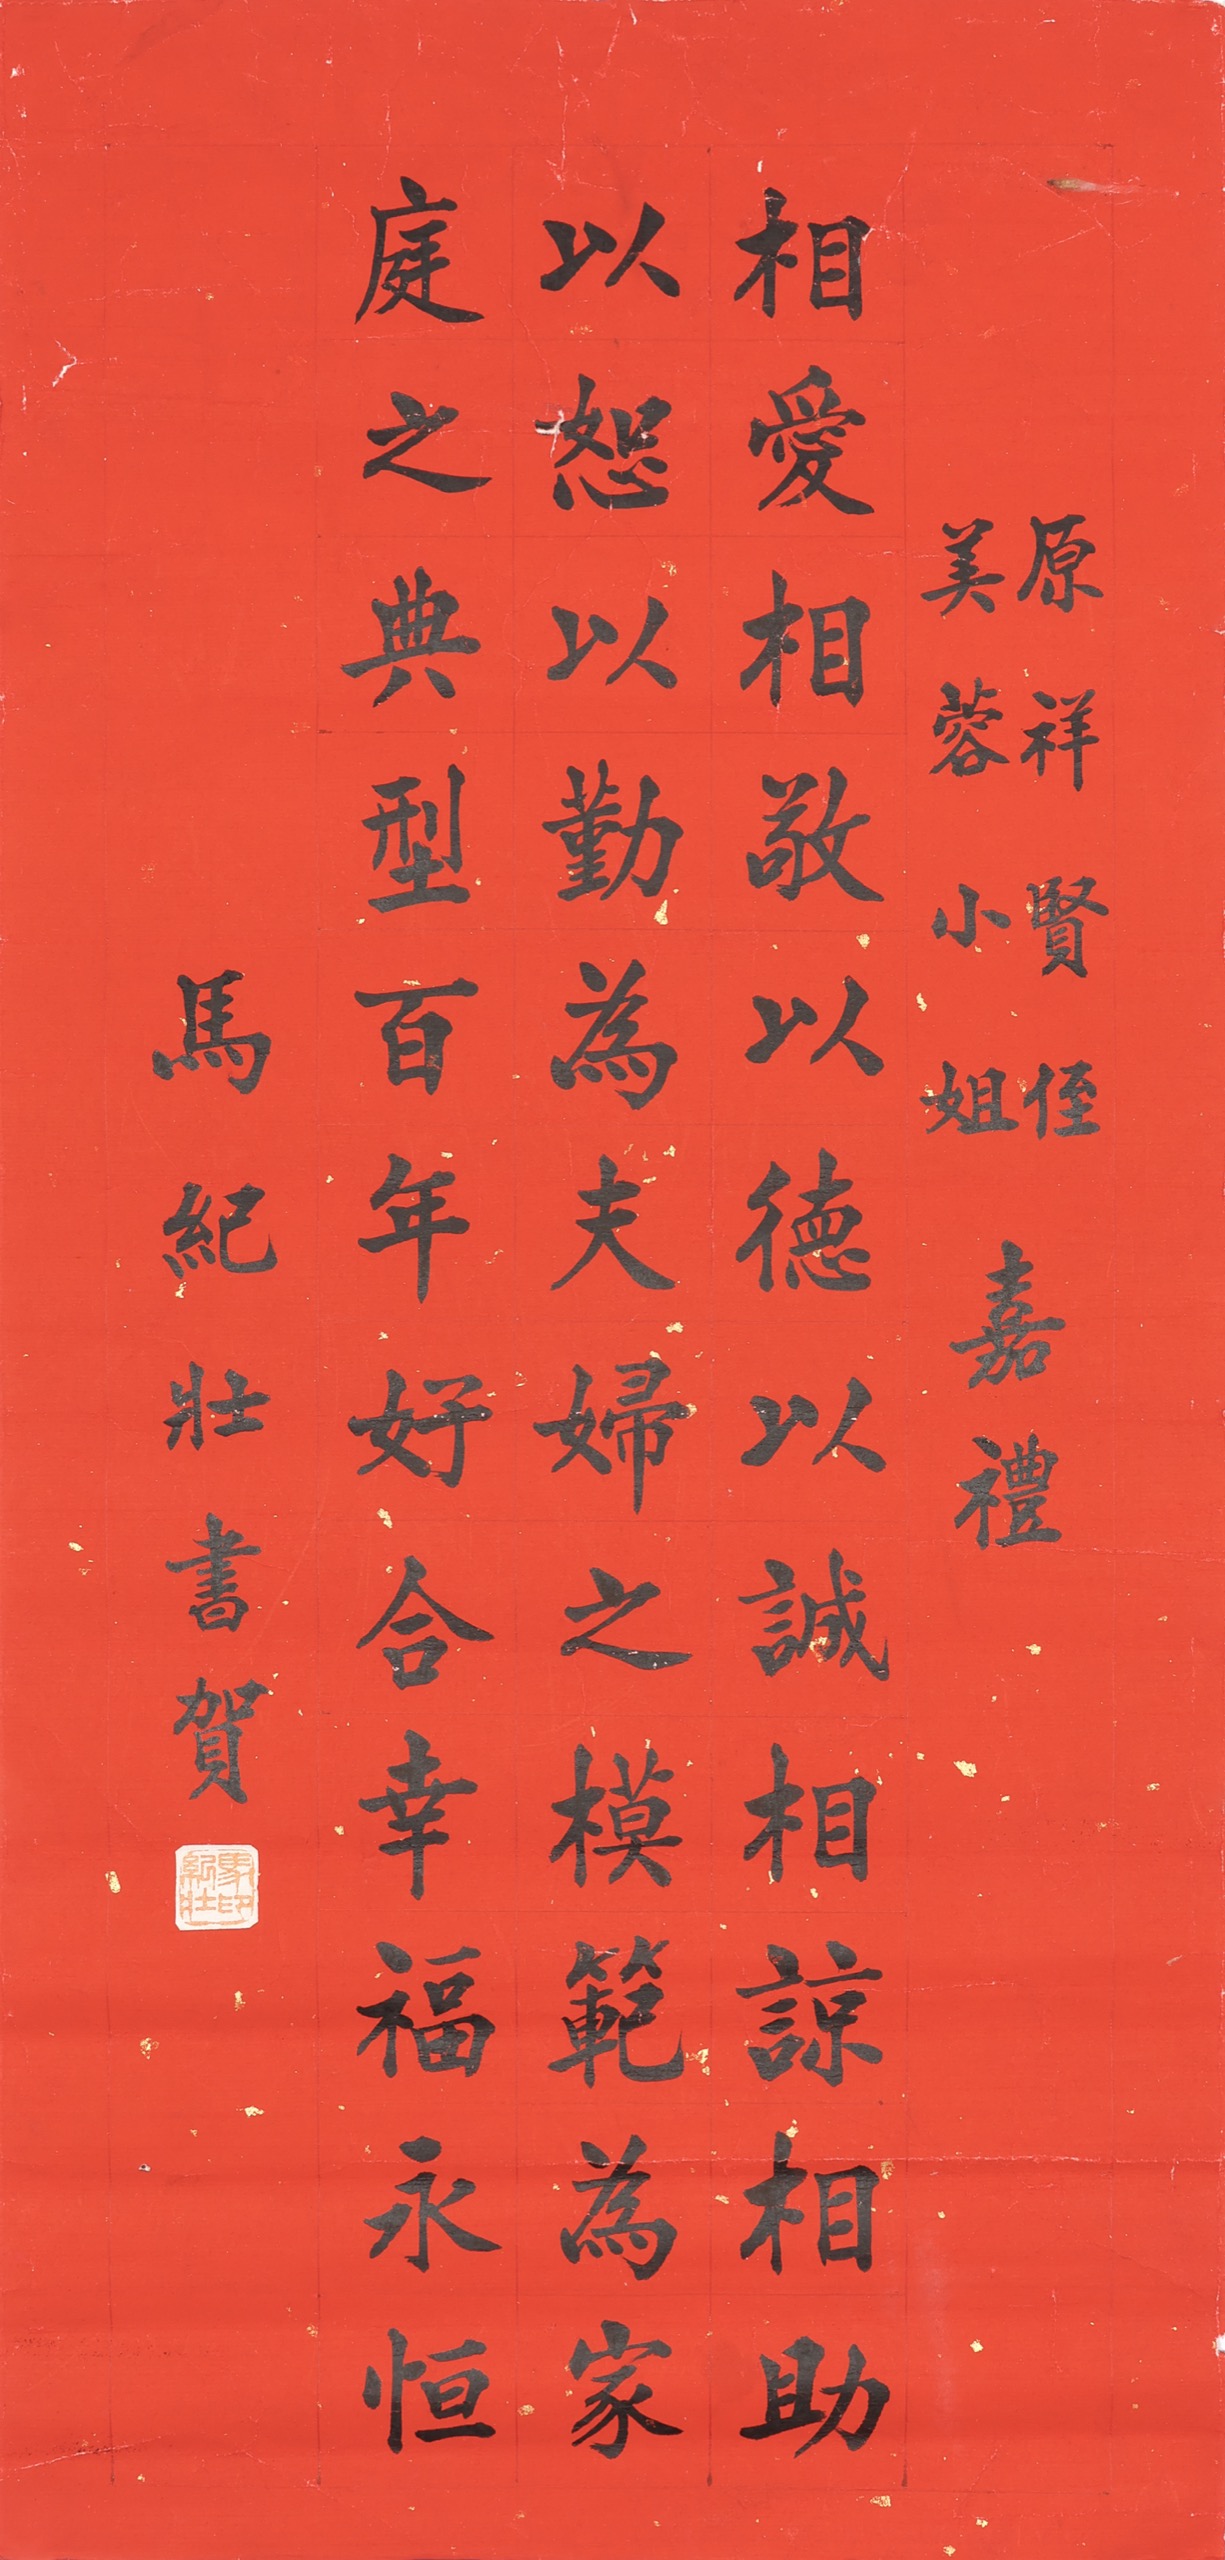 原祥賢侄
美蓉小姐
嘉禮
相愛相敬以德以誠相諒相助
以恕以勤為夫婦之模範為家
庭之典型百年好合幸福永恒
馬紀壯書賀
馬紀壯印